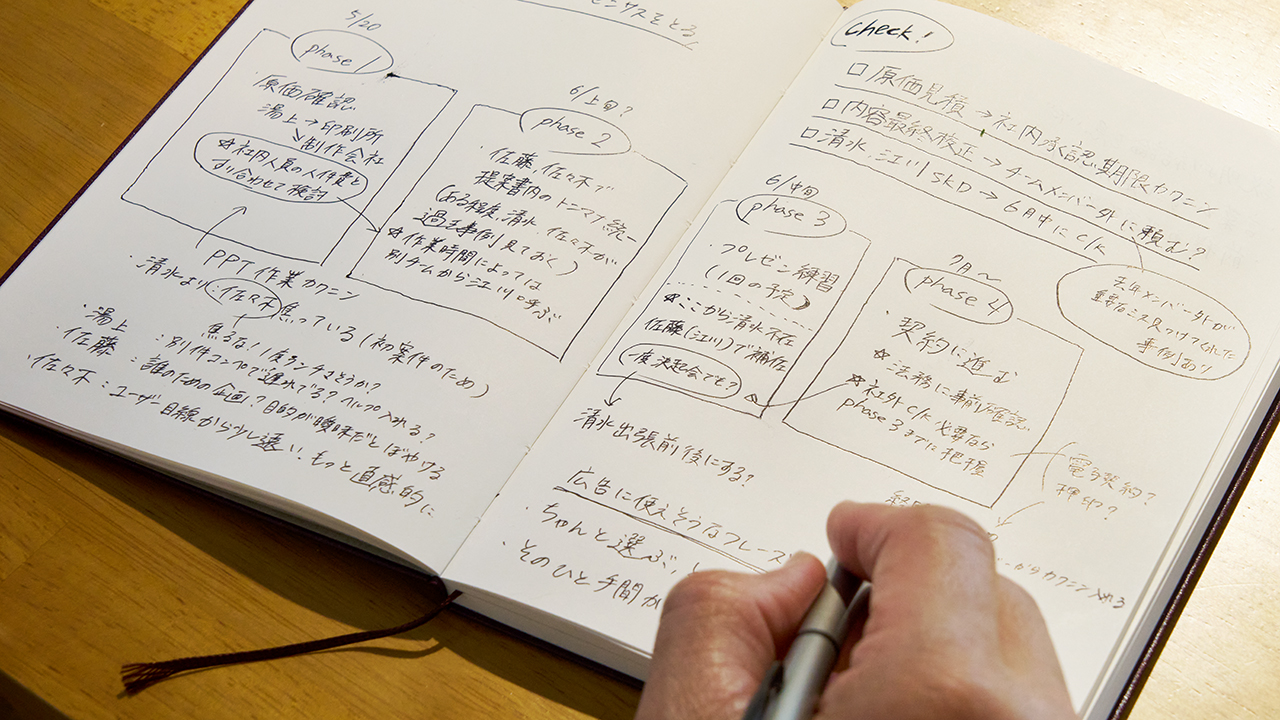 センサスをとる
5/20
phase 1
原価確認
湯上→印刷所
↘制作会社
☆社内人員の人件費と
すり合わせて検討
6/上旬?
phase 2
・佐藤、佐々木で
提案書内のトンマナ統一
(ある程度、清水、佐々木が
過去事例見ておく)
☆作業時間によっては
別チームから江川呼ぶ
PPT作業カクニン
・清水より:佐々木焦っている(初案件のため)
焦るな!1度ランチまとうか?
・湯上:別件コンペで遅れでる?ヘルプ入れる?
・佐藤:誰のための企画?目的が曖昧だとぼやける
(佐々木:ユーザー目線から少し遠い、もっと直感的に
check!
□原価見積→社内承認、期限カクニン
□内容最終校正→チームメンバー外に頼む?
□清水、江川SKD→6月中にCK
去年メンバー外が
事例あり
6/中旬
phase 3
・プレゼン練習
(1回の予定)
☆ここから清水不在
佐藤(江川)で補佐
一度決起会でも?
清水出張前後にする?
7月〜
phase 4
・契約に進む
☆法務に事前確認
☆社外CK必要なら
phase 3までに把握
電子契約?
押印?
広告に使えそうなフレーズ
・ちゃんと選ぶ、
・そのひと手間が
カクニン入れる